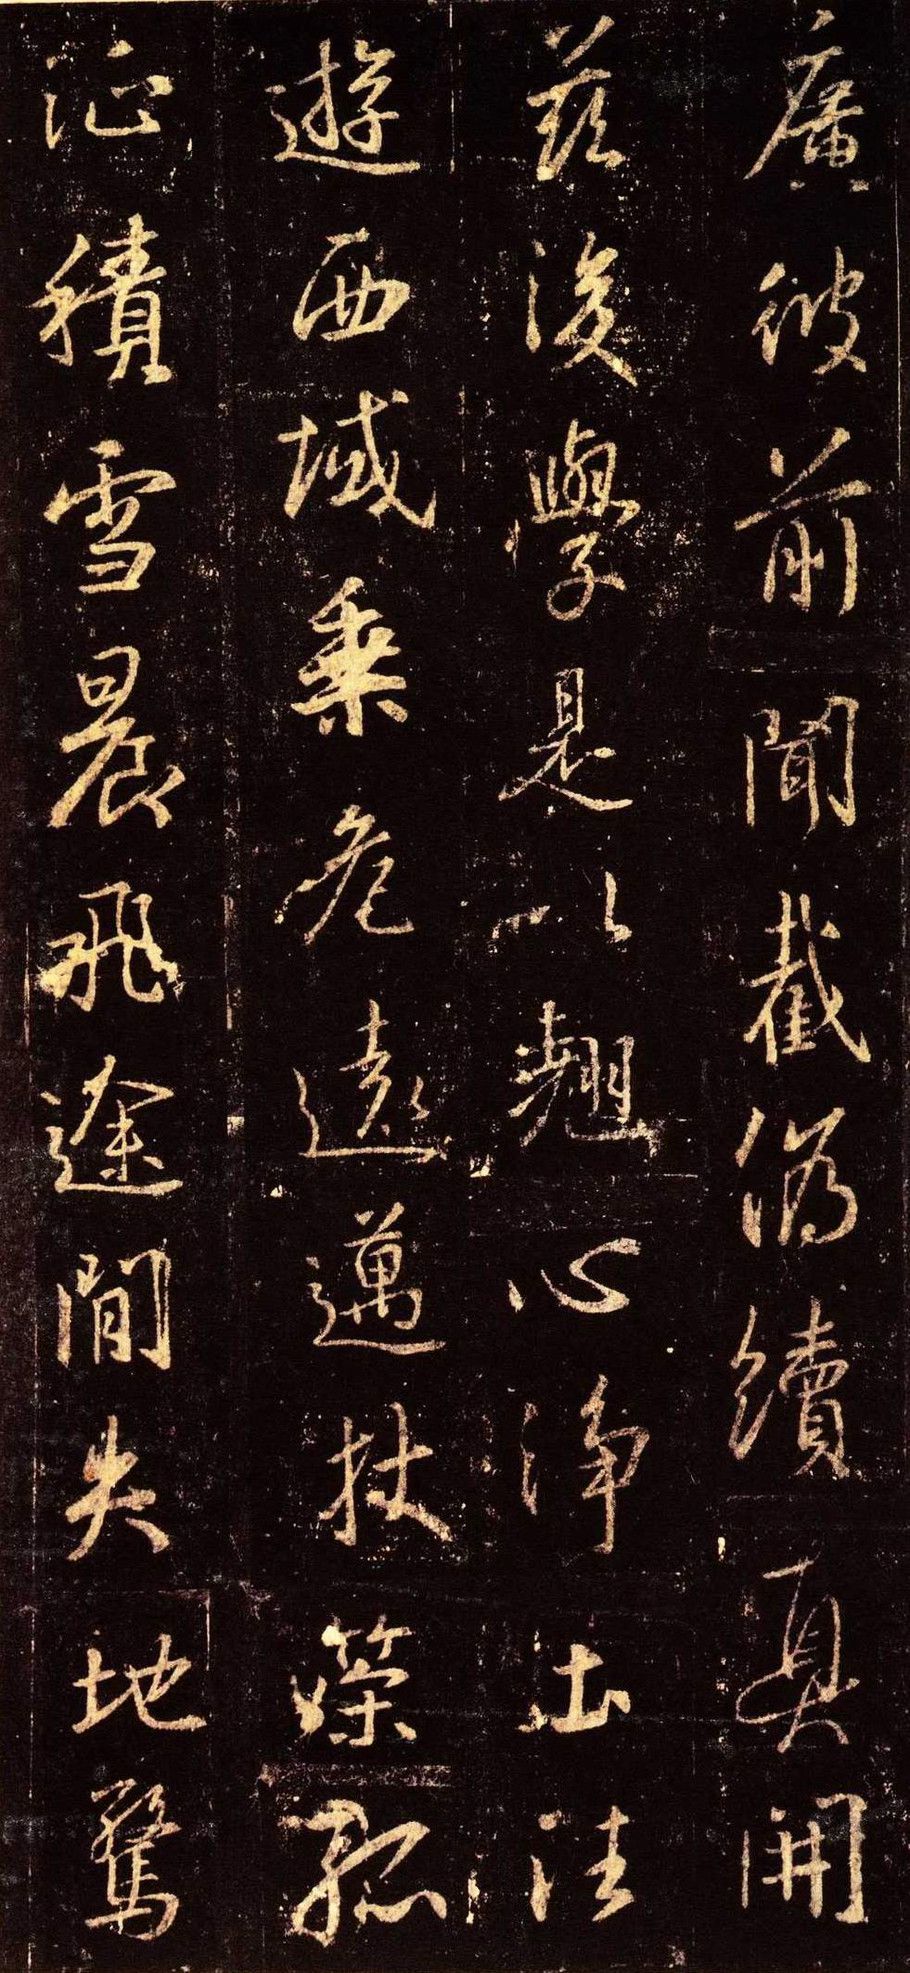 廣彼前聞截偽續真開
茲後學是以翹心淨土往
遊西域乘危遠邁杖策孤
征積雪晨飛途閒失地驚